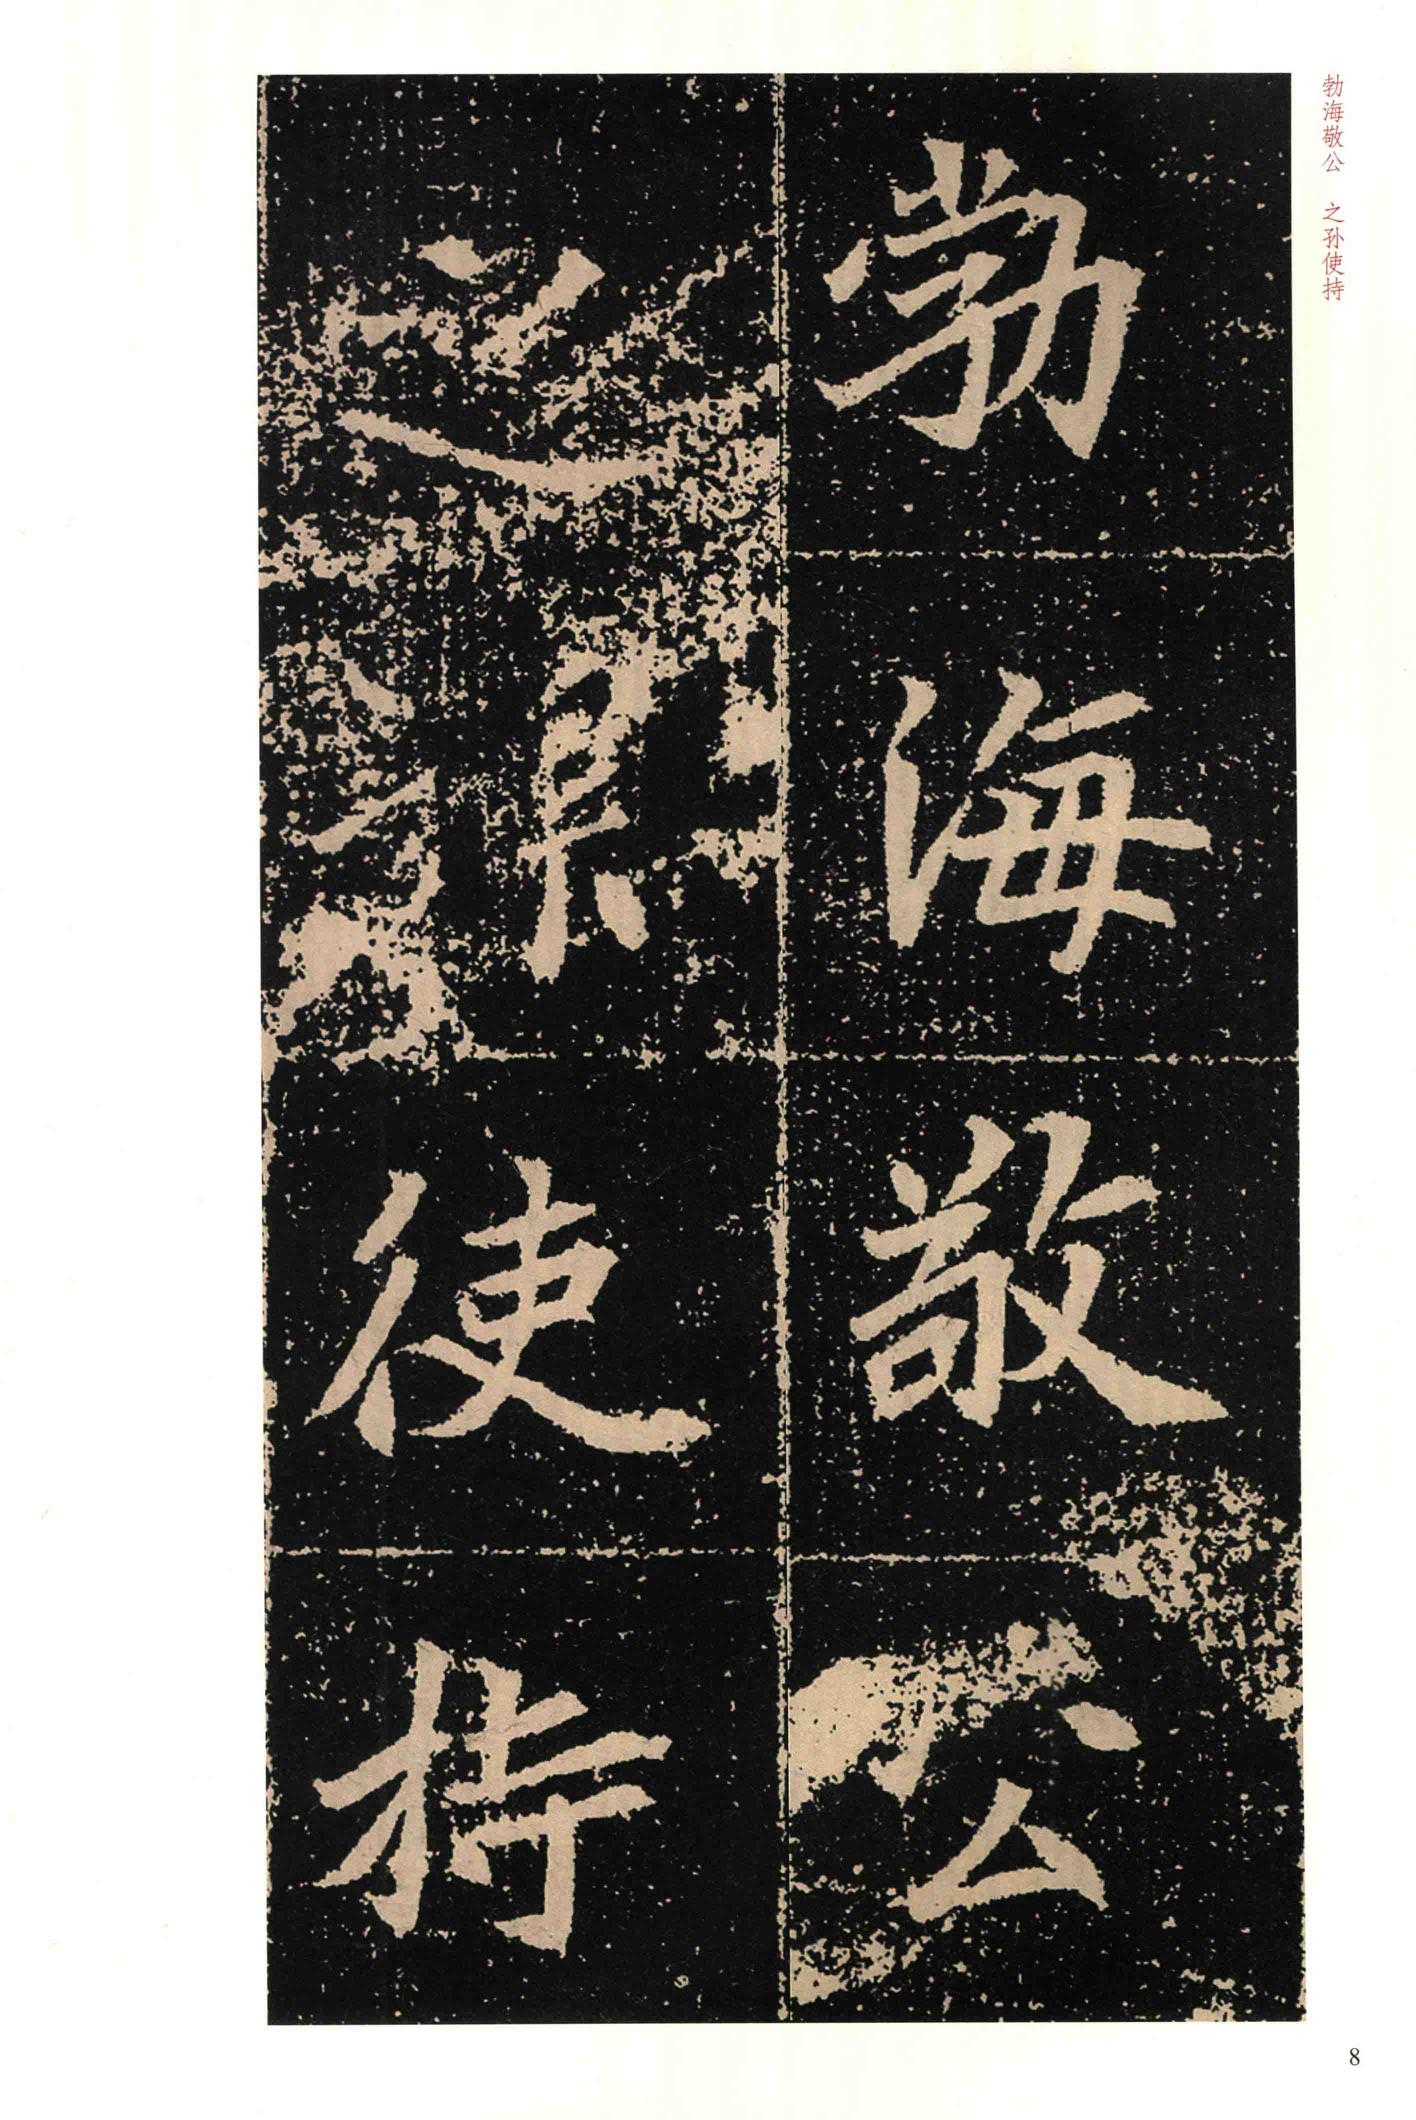 勃海敬公
之孫使持
勃海敬公 之孙使持
8